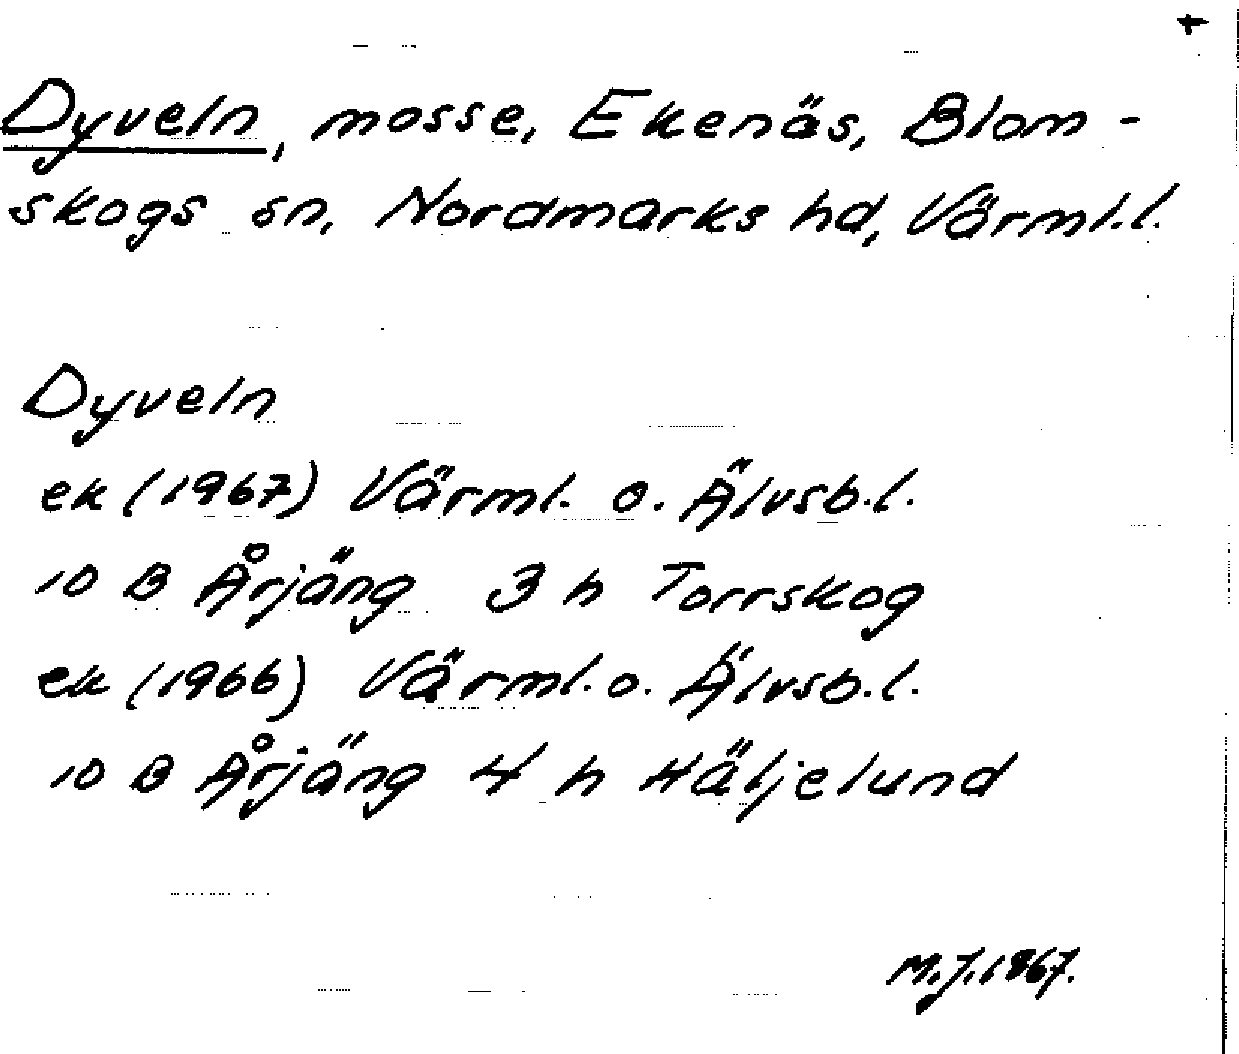 Dyveln, mosse, Ekenäs, Blom-
skogs sn, Nordmarks hd, Värml.l.
Dyveln
ek (1967) Värml. o. Älvsb.l.
10 B Årjäng 3 h Torrskog
ek (1966) Värml. o. Älvsb.l.
10 B Årjäng 4 h Häljelund
M.J. 1967.